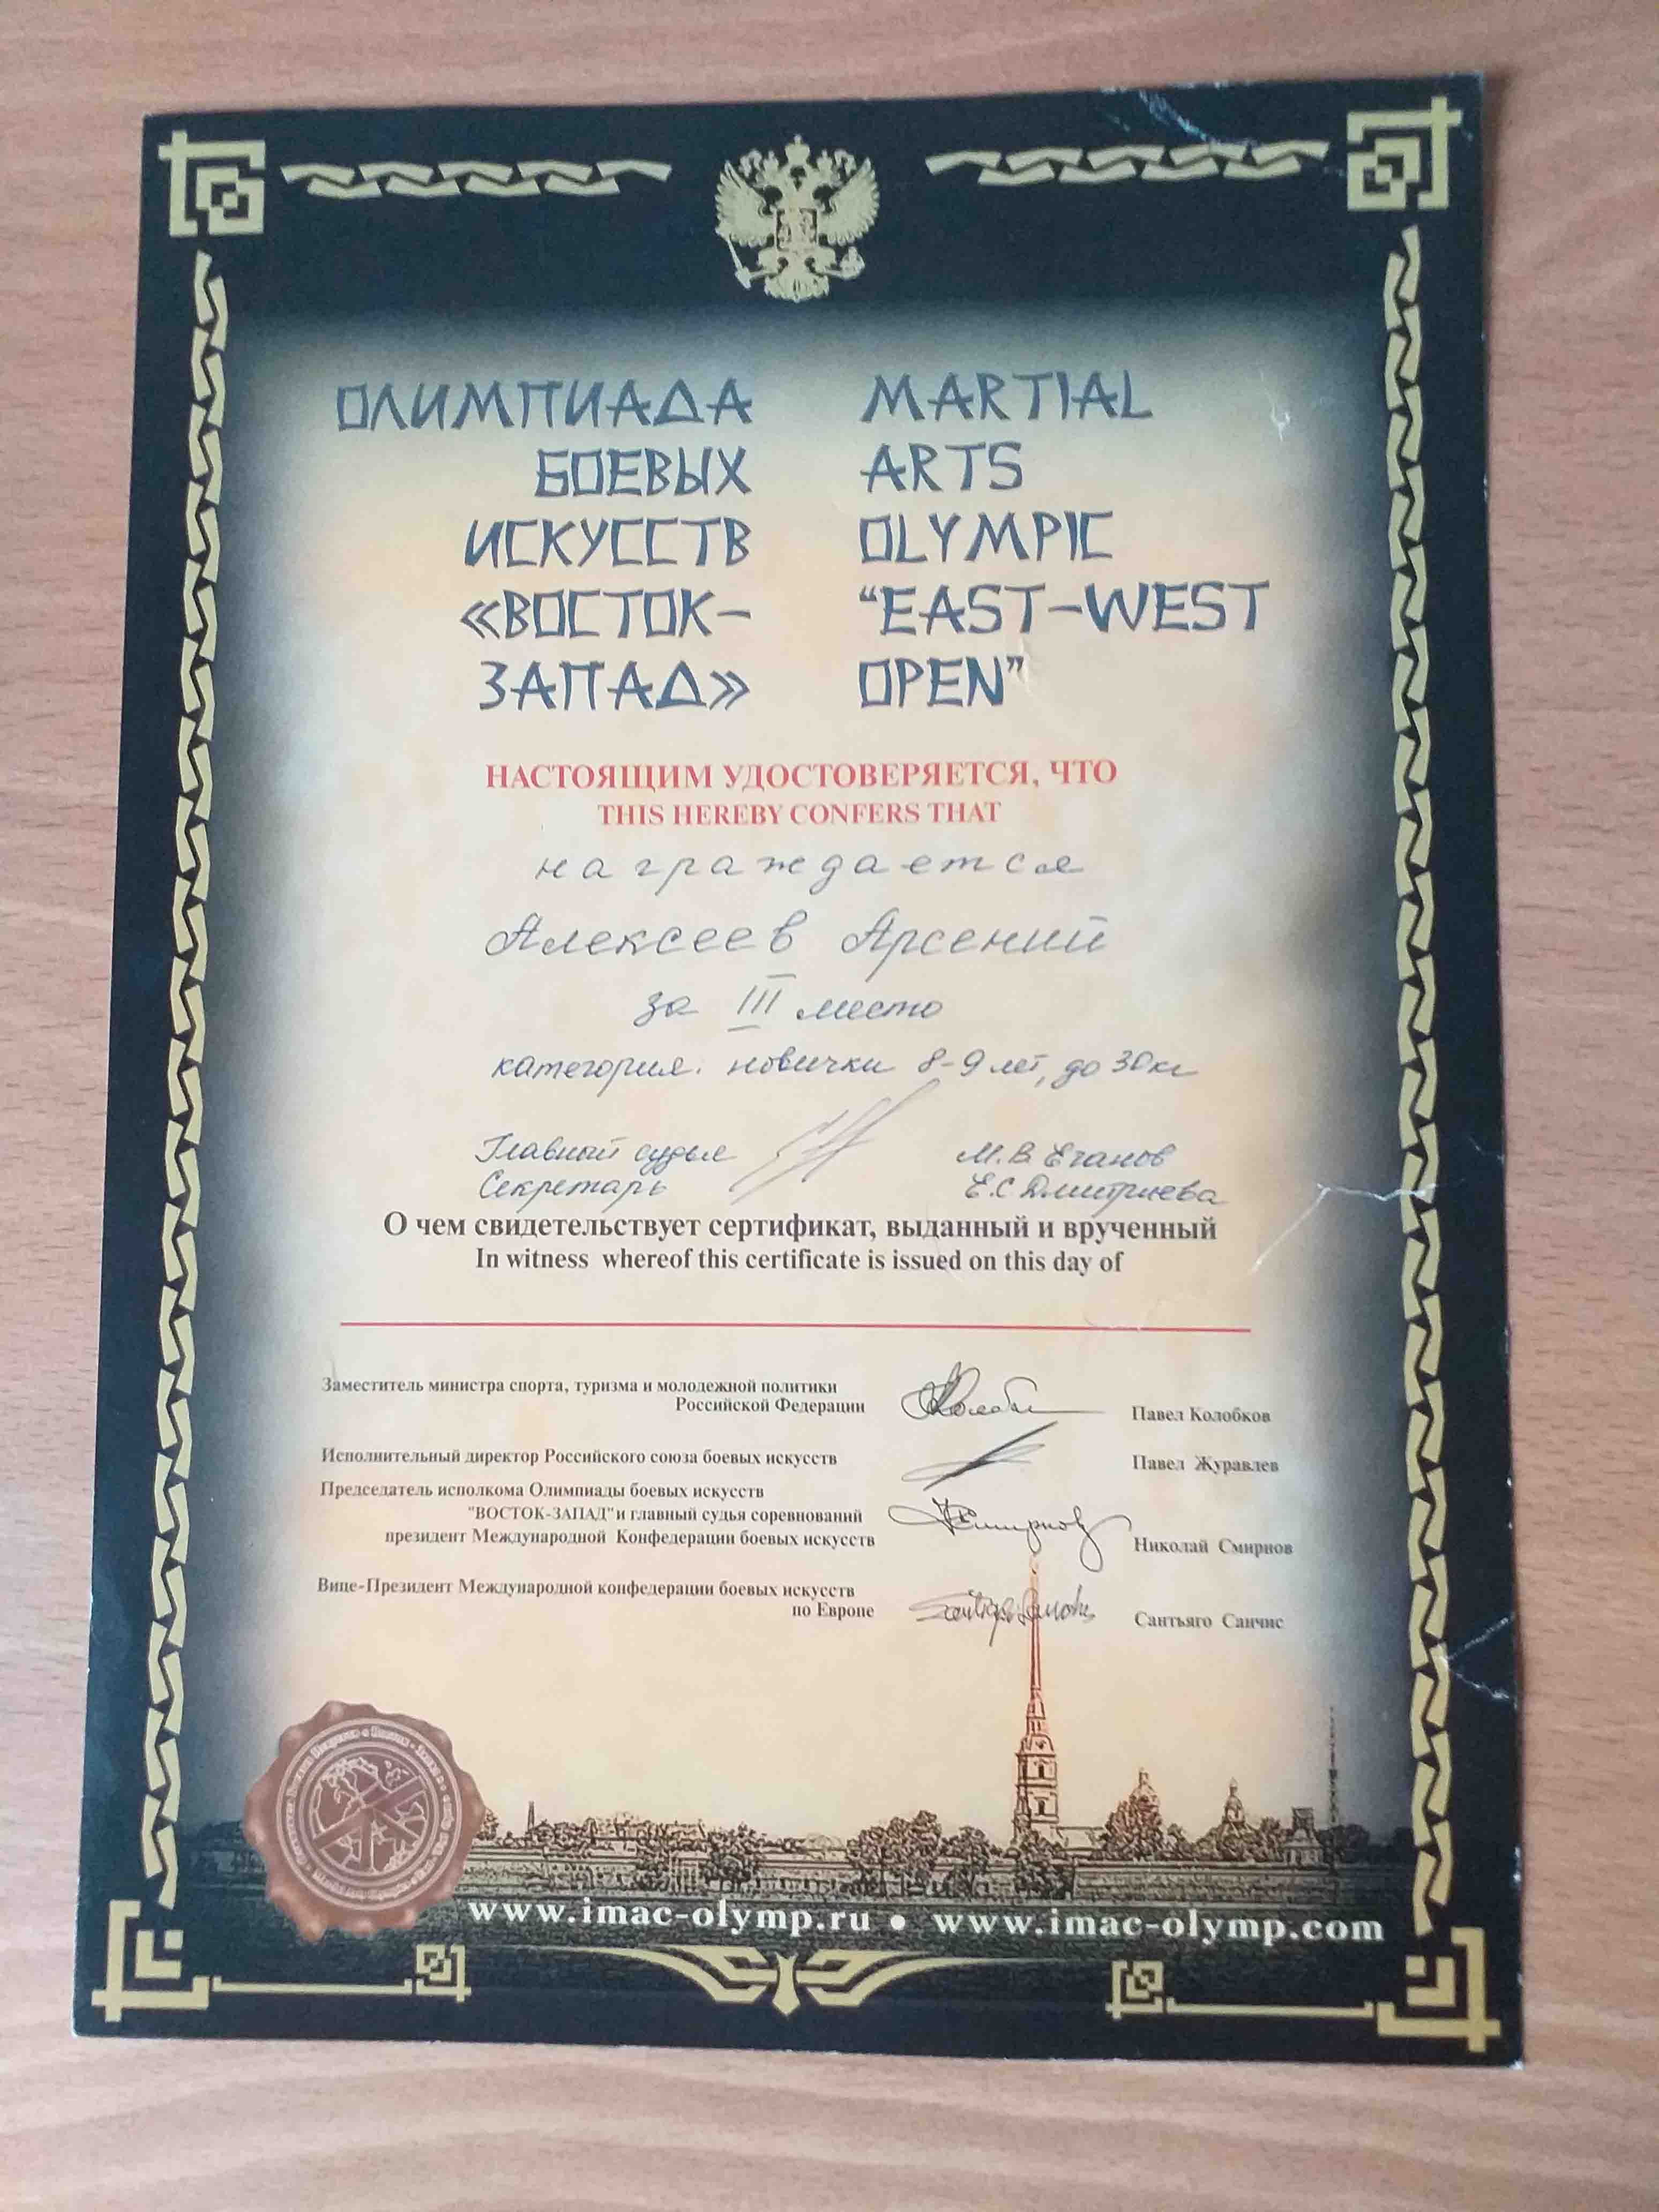 ОЛИМПИАДА
БОЕВЫХ
ИСКУССТВ
«ВОСТОК-
ЗАПАД»
MARTIAL
ARTS
OLYMPIC
“EAST-WEST
OPEN”
НАСТОЯЩИМ УДОСТОВЕРЯЕТСЯ, ЧТО
THIS HEREBY CONFERS THAT
награждается
Алексеев Арсений
за III место
категория. новички 8-9 лет, до 30 кг
Главный судья М.В. Еганов
Секретарь Е.С Дмитриева
О чем свидетельствует сертификат, выданный и врученный
In witness whereof this certificate is issued on this day of
Заместитель министра спорта, туризма и молодежной политики
Российской Федерации
Павел Колобков
Исполнительный директор Российского союза боевых искусств
Павел Журавлев
Председатель исполкома Олимпиады боевых искусств
"ВОСТОК-ЗАПАД" и главный судья соревнований
президент Международной Конфедерации боевых искусств
Николай Смирнов
Вице-Президент Международной конфедерации боевых искусств
по Европе
Сантьяго Санчис
www.imac-olymp.ru • www.imac-olymp.com